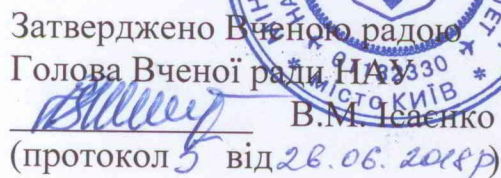 Затверджено Вченою радою
Голова Вченої ради НАУ
В.М. Ісаєнко
(протокол 5 від 26.06.2018р)
МІСТО КИЇВ